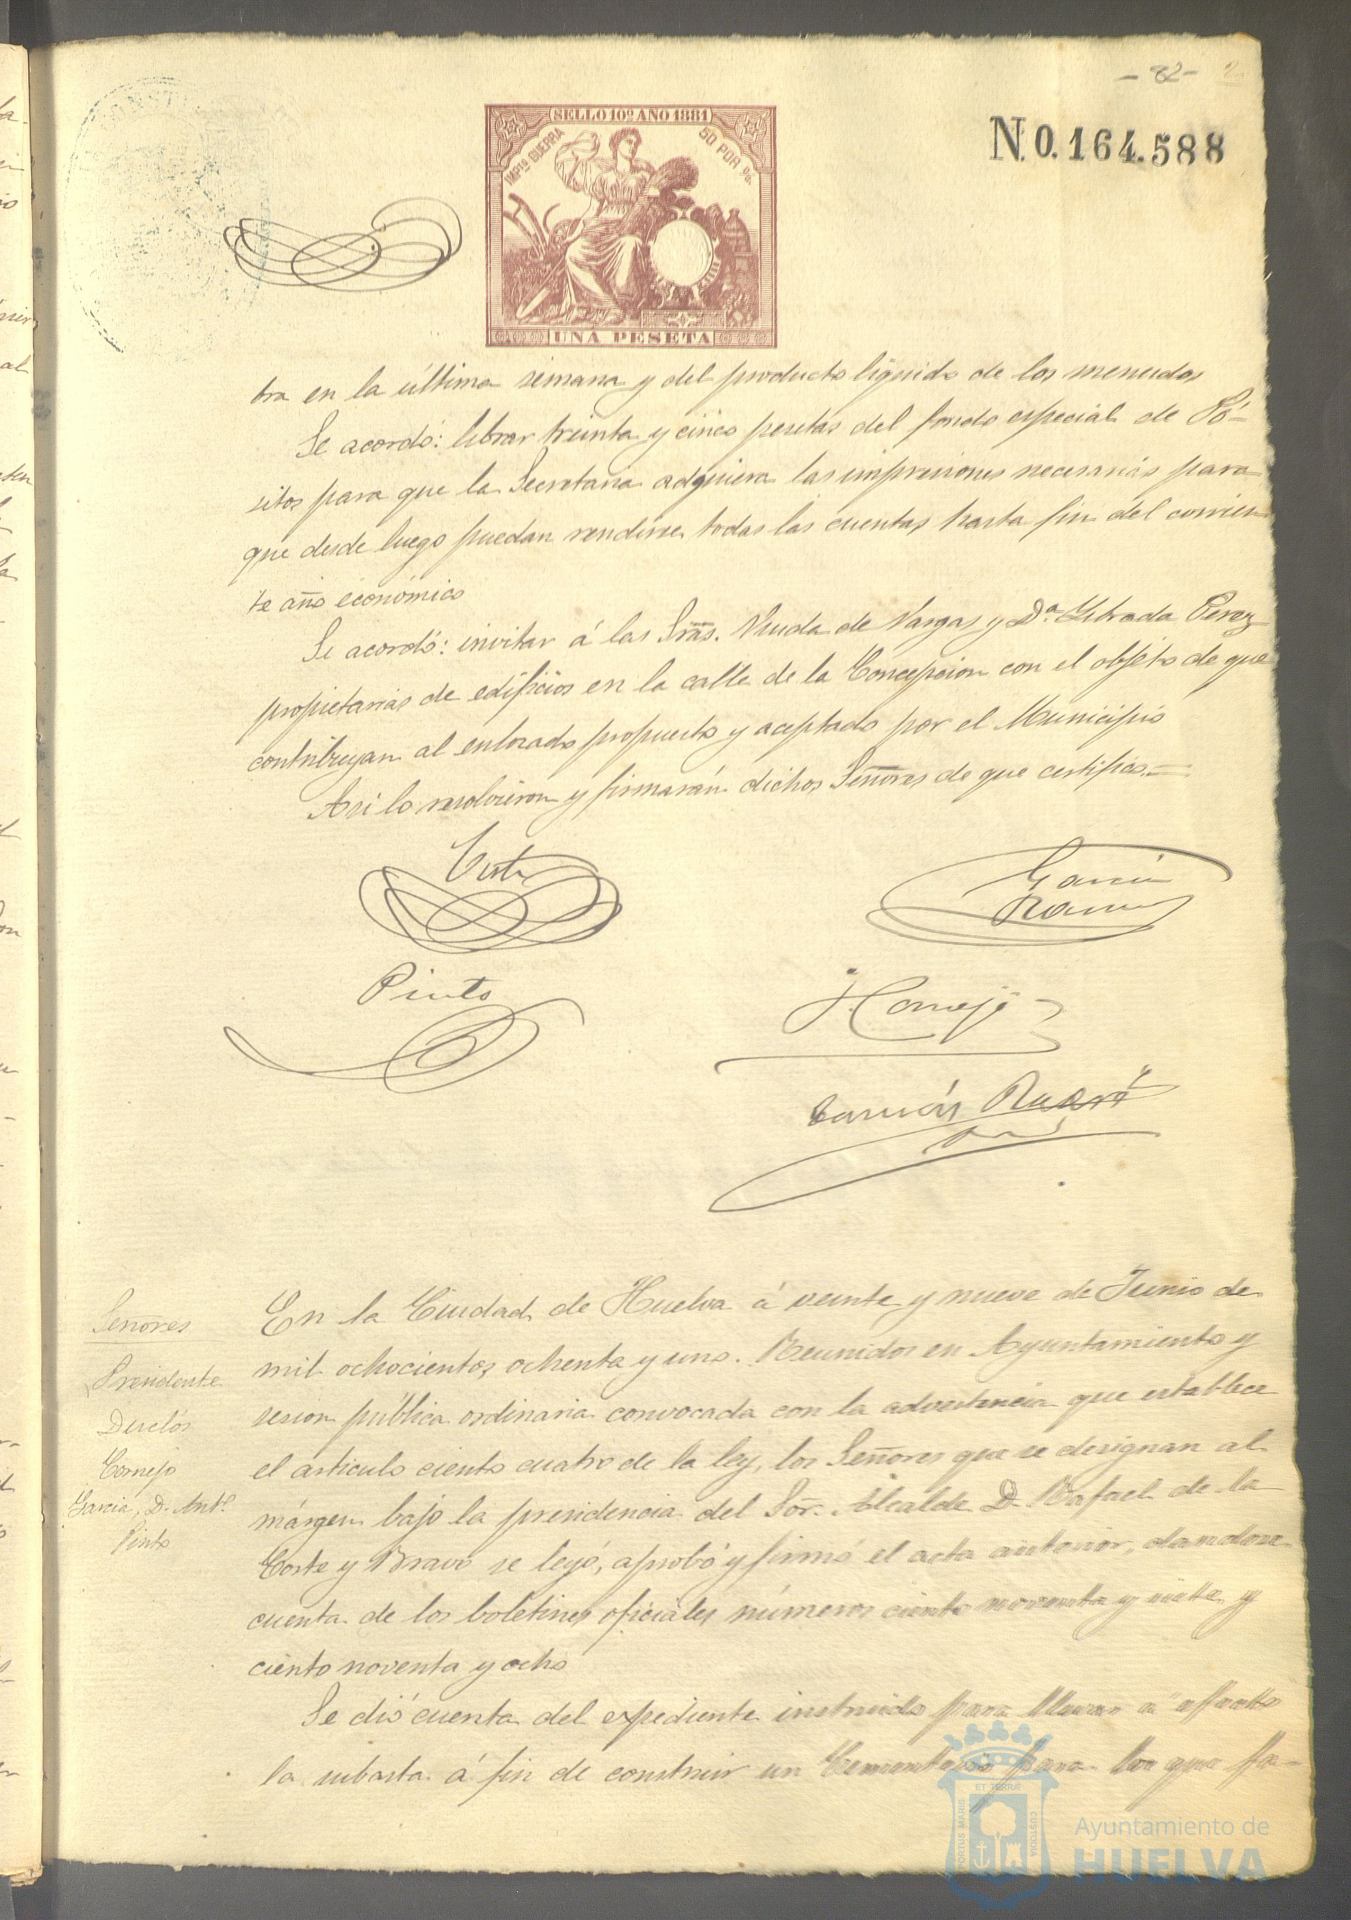 - 82 -
N.0.164.588
SELLO 10º AÑO 1881
IMPTO GUERRA 50 POR %.
UNA PESETA
tra en la última semana y del producto líquido de los menudos
Se acordó: librar treinta y cinco pesetas del fondo especial de Pó-
sitos para que la Secretaria adquiera las impresiones necesarias para
que desde luego puedan rendirse todas las cuentas hasta fin del corrien-
te año económico
Se acordó: invitar á las Sras. Viuda de Vargas y Dª Librada Perez
propietarias de edificios en la calle de la Concepcion con el objeto de que
contribuyan al enlosado propuesto y aceptado por el Municipio
Asi lo resolvieron y firmarán dichos Señores de que certifico.=
Corte
Garcia
Ramos
Pinto
Cornejo
En la Ciudad de Huelva á veinte y nueve de Junio de
mil ochocientos ochenta y uno. Reunidos en Ayuntamiento y
sesion pública ordinaria convocada con la advertencia que establece
el articulo ciento cuatro de la ley, los Señores que se designan al
márgen bajo la presidencia del Sor. Alcalde D. Rafael de la
Corte y Bravo se leyó, aprobó y firmó el acta anterior, dandose
cuenta de los boletines oficiales números ciento noventa y siete y
ciento noventa y ocho
Se dió cuenta del expediente instruido para llevar a efecto
la subasta á fin de construir un Cementerio para los que fa-
Señores
Presidente
Duclós
Cornejo
Garcia, D. Antº
Pinto
PORTUS MARIS ET TERRÆ CUSTODIA
Ayuntamiento de
HUELVA